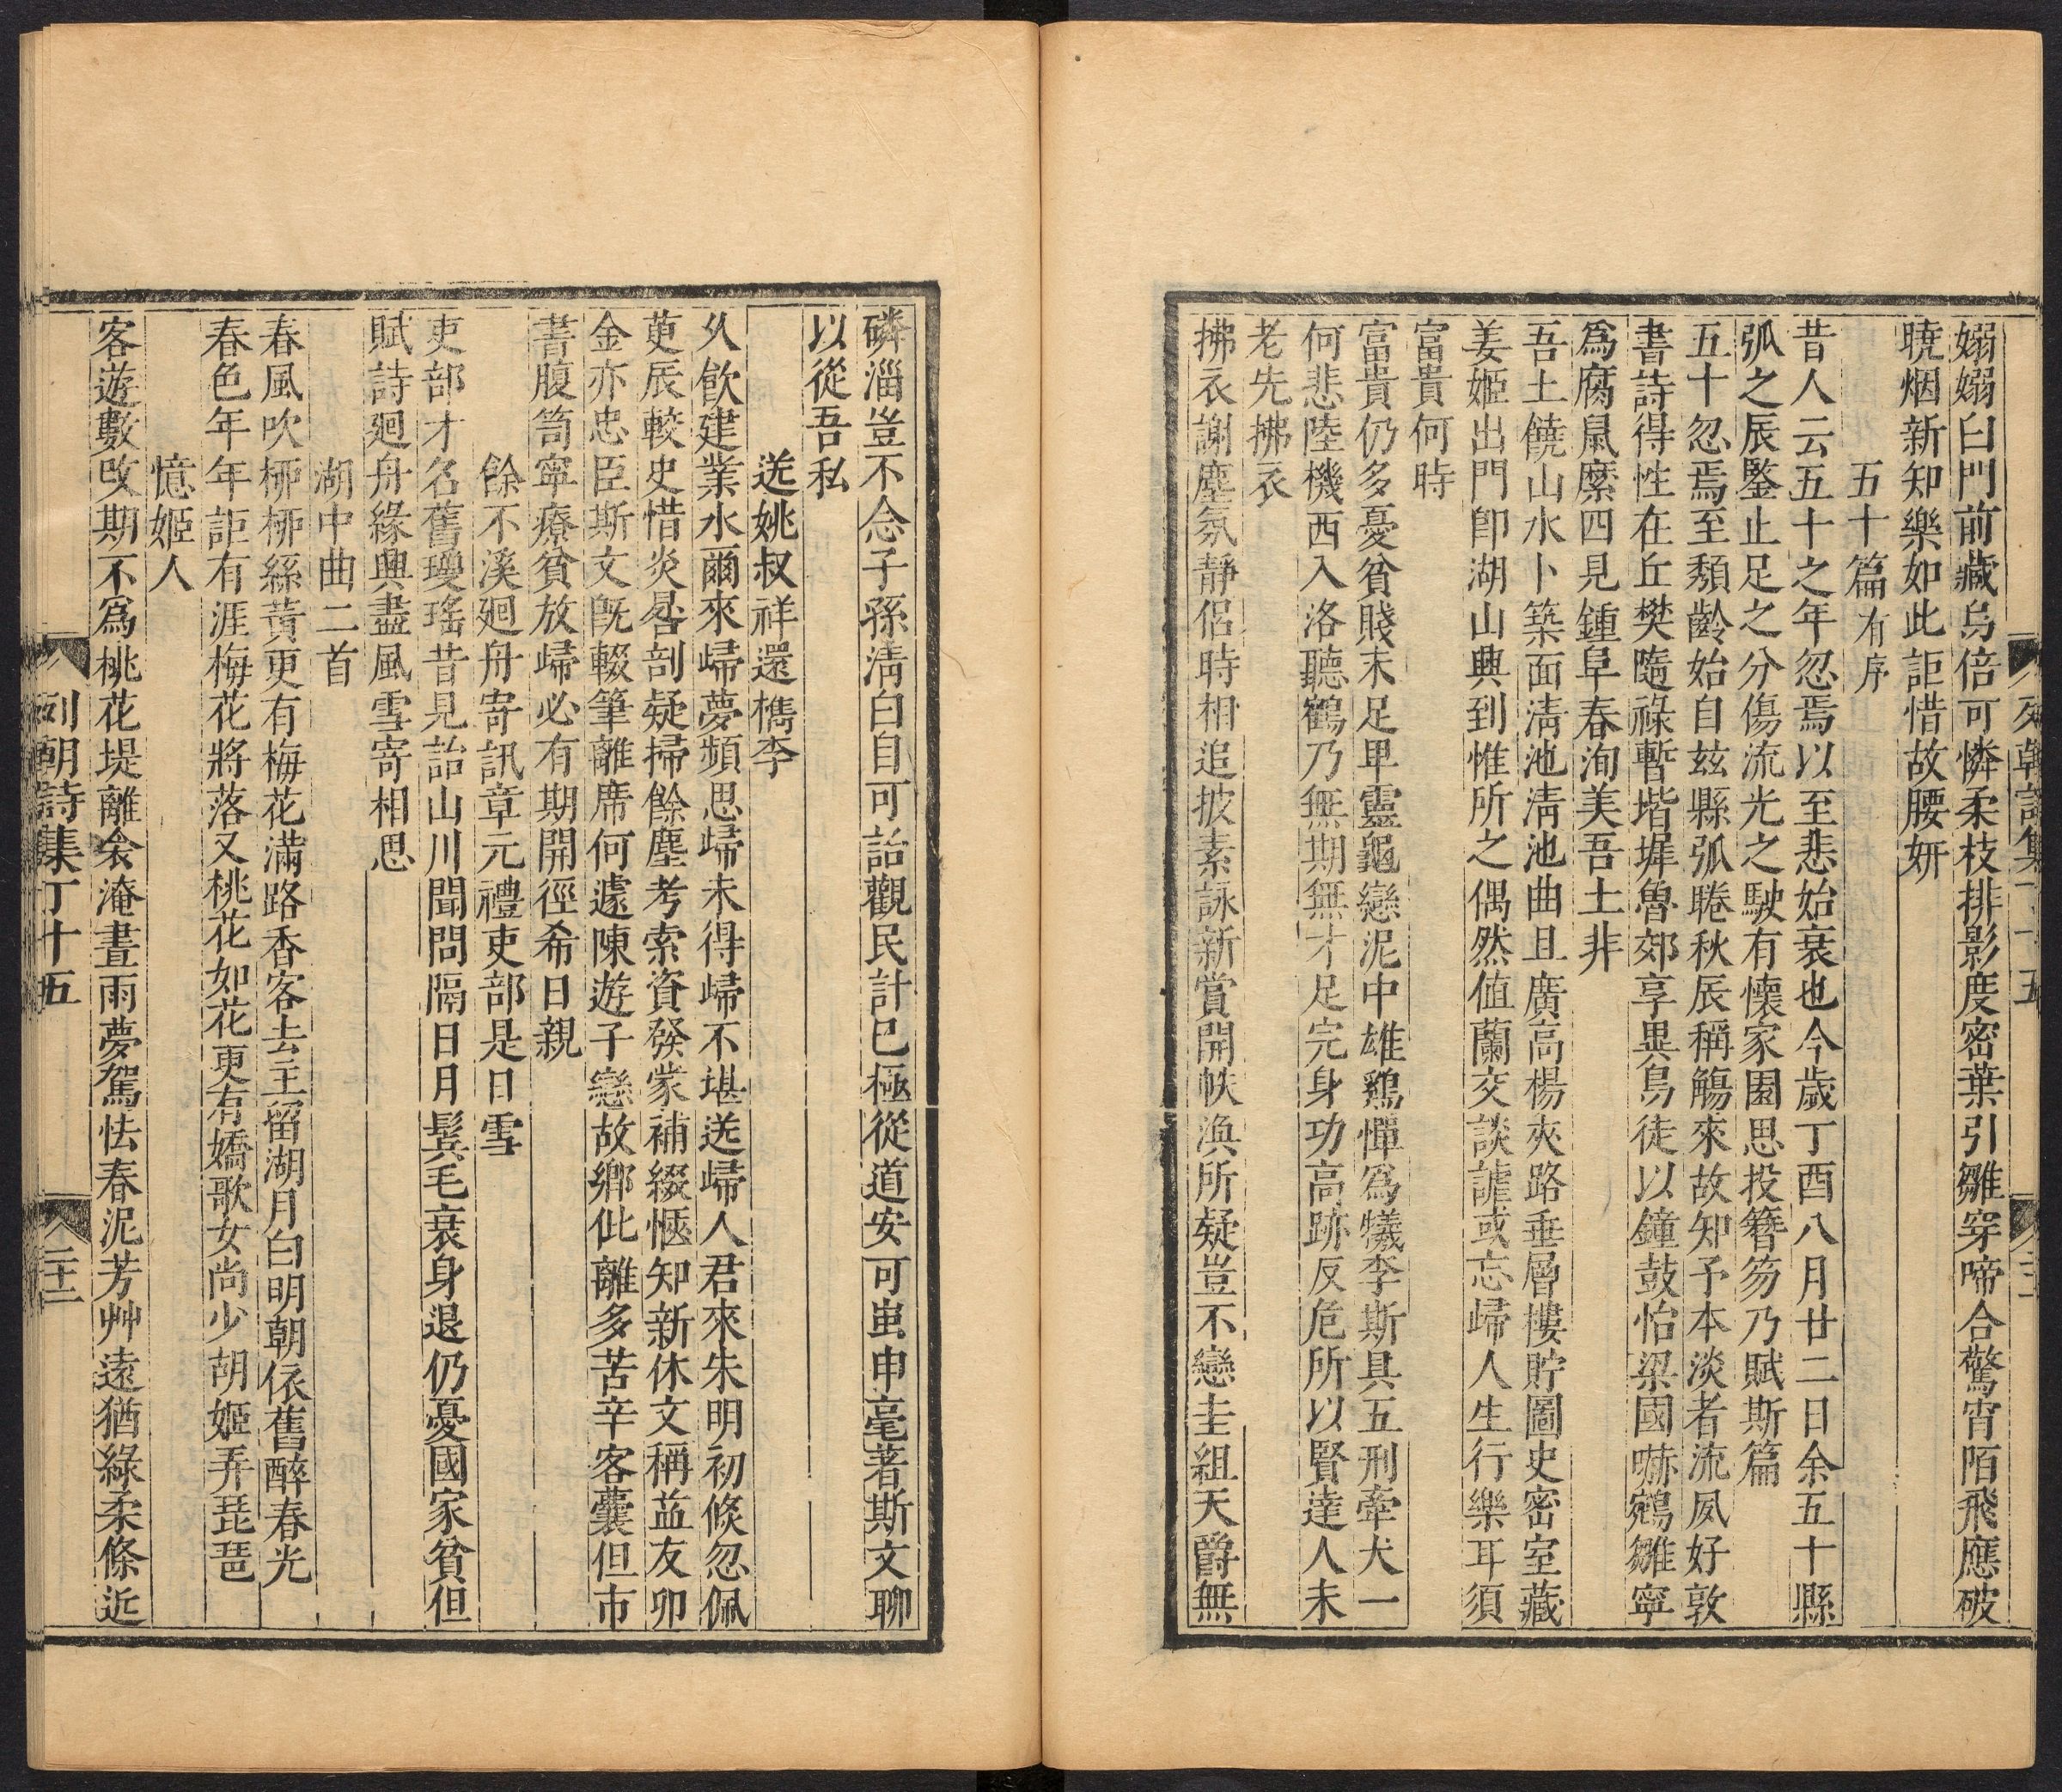 列朝詩集丁十五
嫋嫋白門前藏烏倍可憐柔枝排影度密葉引雛穿啼合驚宵陌飛應破
曉烟新知樂如此詎惜故腰妍
五十篇有序
昔人云五十之年忽焉以至悲始衰也今歲丁酉八月廿二日余五十縣
弧之辰鑒止足之分傷流光之駛有懷家園思投簪笏乃賦斯篇
五十忽焉至頽齡始自玆縣弧睠秋辰稱觴來故知予本淡者流夙好敦
書詩得性在丘樊隨祿暫堦墀魯郊享異鳥徒以鐘鼓怡梁國嚇鵷雛寧
爲腐鼠縻四見鍾阜春洵美吾土非
吾土饒山水卜築面淸池淸池曲且廣高楊夾路垂層樓貯圖史密室藏
姜姬出門卽湖山興到惟所之偶然值蘭交談謔或忘歸人生行樂耳須
富貴何時
富貴仍多憂貧賤未足卑靈龜戀泥中雄鷄憚爲犧李斯具五刑牽犬一
何悲陸機西入洛聽鶴乃無期無才足完身功高跡反危所以賢達人未
老先拂衣
拂衣謝塵氛靜侶時相追披素詠新賞開帙渙所疑豈不戀圭組天爵無
磷淄豈不念子孫淸白自可詒觀民計巳極從道安可蚩申毫著斯文聊
以從吾私
送姚叔祥還檇李
久飮建業水爾來歸夢頻思歸未得歸不堪送歸人君來朱明初倏忽佩
萸辰較史惜炎晷剖疑掃餘塵考索資發蒙補綴愜知新休文稱益友卯
金亦忠臣斯文旣輟筆離席何遽陳遊子戀故鄉仳離多苦辛客囊但市
書腹笥寧療貧放歸必有期開徑希日親
餘不溪廻舟寄訊章元禮吏部是日雪
吏部才名舊瓊瑤昔見詒山川聞問隔日月鬂毛衰身退仍憂國家貧但
賦詩廻舟緣興盡風雪寄相思
湖中曲二首
春風吹桺桺絲黃更有梅花滿路香客去主留湖月白明朝依舊醉春光
春色年年詎有涯梅花將落又桃花如花更有嬌歌女尚少胡姬弄琵琶
憶姬人
客遊數改期不爲桃花堤離衾淹晝雨夢駕怯春泥芳艸遠猶綠柔條近
列朝詩集丁十五
二十二